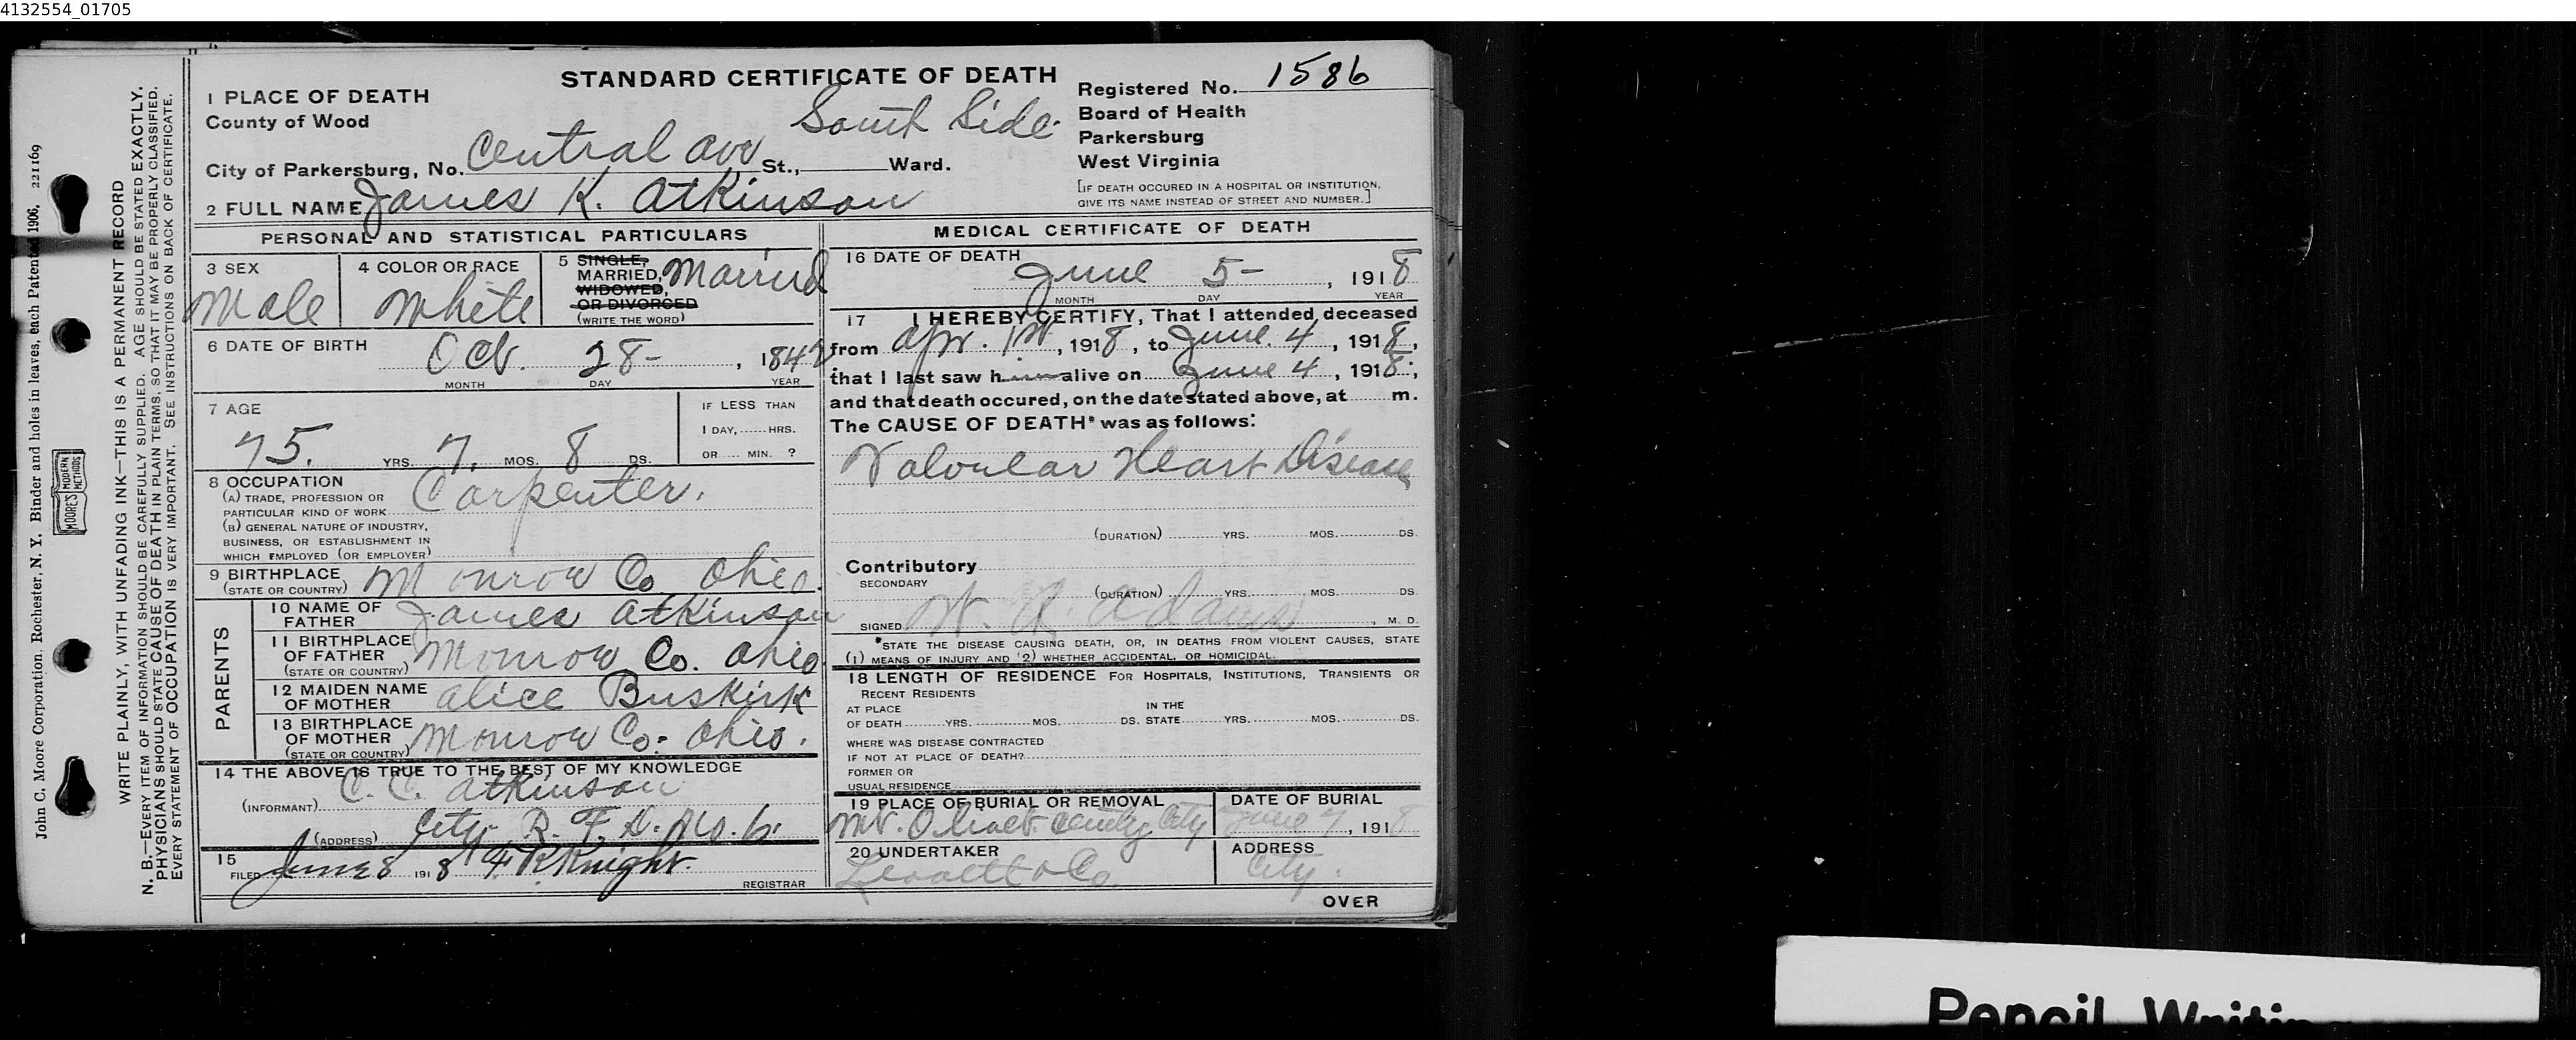 4132554_01705
STANDARD CERTIFICATE OF DEATH
Registered No. 1586
Board of Health
Parkersburg
West Virginia
[IF DEATH OCCURED IN A HOSPITAL OR INSTITUTION,
GIVE ITS NAME INSTEAD OF STREET AND NUMBER.]
1 PLACE OF DEATH
County of Wood
South Side
City of Parkersburg, No. Central ave St., Ward.
2 FULL NAME James K. Atkinson
PERSONAL AND STATISTICAL PARTICULARS
3 SEX
Male
4 COLOR OR RACE
White
5 SINGLE,
MARRIED, Married
WIDOWED,
OR DIVORCED
(WRITE THE WORD)
6 DATE OF BIRTH
Oct. 28-, 1842
MONTH DAY YEAR
7 AGE
75. YRS. 7. MOS. 8 DS.
IF LESS THAN
1 DAY, HRS.
OR MIN. ?
8 OCCUPATION
(A) TRADE, PROFESSION OR
PARTICULAR KIND OF WORK Carpenter.
(B) GENERAL NATURE OF INDUSTRY,
BUSINESS, OR ESTABLISHMENT IN
WHICH EMPLOYED (OR EMPLOYER)
9 BIRTHPLACE
(STATE OR COUNTRY) Monrow Co Ohio.
PARENTS
10 NAME OF
FATHER James Atkinson
11 BIRTHPLACE
OF FATHER
(STATE OR COUNTRY) Monrow Co. Ohio
12 MAIDEN NAME
OF MOTHER Alice Buskirk
13 BIRTHPLACE
OF MOTHER
(STATE OR COUNTRY) Monrow Co. Ohio.
14 THE ABOVE IS TRUE TO THE BEST OF MY KNOWLEDGE
(INFORMANT) C. C. Atkinson
(ADDRESS) City R. F. D. No. 6.
15
FILED June 8 1918 R Knight.
REGISTRAR
MEDICAL CERTIFICATE OF DEATH
16 DATE OF DEATH
June 5-, 1918
MONTH DAY YEAR
17 I HEREBY CERTIFY, That I attended deceased
from Apr. 1st, 1918, to June 4, 1918,
that I last saw him alive on June 4, 1918,
and that death occured, on the date stated above, at m.
The CAUSE OF DEATH* was as follows:
Valvular Heart Disease
(DURATION) YRS. MOS. DS.
Contributory
SECONDARY
(DURATION) YRS. MOS. DS.
SIGNED Adams, M. D.
*STATE THE DISEASE CAUSING DEATH, OR, IN DEATHS FROM VIOLENT CAUSES, STATE
(1) MEANS OF INJURY AND (2) WHETHER ACCIDENTAL, OR HOMICIDAL.
18 LENGTH OF RESIDENCE FOR HOSPITALS, INSTITUTIONS, TRANSIENTS OR
RECENT RESIDENTS
AT PLACE IN THE
OF DEATH YRS. MOS. DS. STATE YRS. MOS. DS.
WHERE WAS DISEASE CONTRACTED
IF NOT AT PLACE OF DEATH?
FORMER OR
USUAL RESIDENCE
19 PLACE OF BURIAL OR REMOVAL
Mt. Olivet City
DATE OF BURIAL
June 7, 1918
20 UNDERTAKER
Leavitt & Co.
ADDRESS
City.
OVER
John C. Moore Corporation, Rochester, N. Y. Binder and holes in leaves, each Patented 1906, 221169
MOORE'S MODERN METHODS
WRITE PLAINLY, WITH UNFADING INK—THIS IS A PERMANENT RECORD
N. B.—EVERY ITEM OF INFORMATION SHOULD BE CAREFULLY SUPPLIED. AGE SHOULD BE STATED EXACTLY.
PHYSICIANS SHOULD STATE CAUSE OF DEATH IN PLAIN TERMS, SO THAT IT MAY BE PROPERLY CLASSIFIED.
EVERY STATEMENT OF OCCUPATION IS VERY IMPORTANT. SEE INSTRUCTIONS ON BACK OF CERTIFICATE.
Pencil Writing